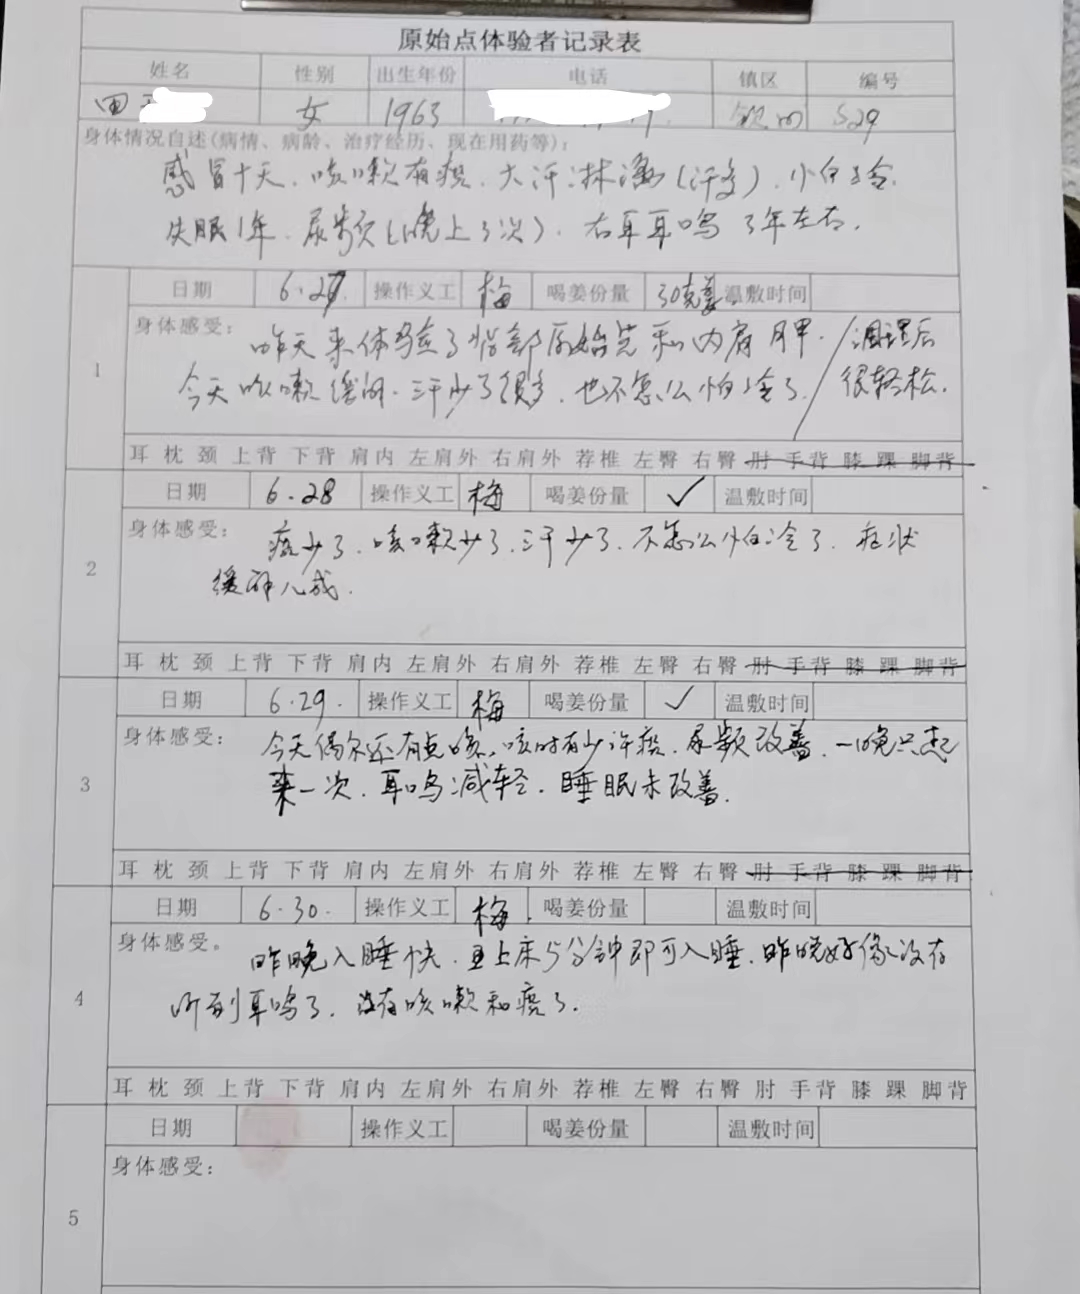 原始点体验者记录表
姓名 性别 出生年份 电话 镇区 编号
田 女 1963 529
身体情况自述(病情、病龄、治疗经历、现在用药等):
感冒十天、咳嗽有痰、大汗淋漓(汗多)、怕冷.
失眠1年、尿频(晚上3次)、右耳耳鸣3年左右.
1
日期 6.27. 操作义工 梅 喝姜份量 30克姜 温敷时间
身体感受: 昨天来体验了背部原始点和内肩胛. / 调理后
今天咳嗽缓解.汗少了很多.也不怎么怕冷了. 很轻松.
耳 枕 颈 上背 下背 肩内 左肩外 右肩外 荐椎 左臀 右臀 肘 手背 膝 踝 脚背
2
日期 6.28 操作义工 梅 喝姜份量 ✓ 温敷时间
身体感受: 痰少了.咳嗽少了.汗少了.不怎么怕冷了.症状
缓解八成.
耳 枕 颈 上背 下背 肩内 左肩外 右肩外 荐椎 左臀 右臀 肘 手背 膝 踝 脚背
3
日期 6.29. 操作义工 梅 喝姜份量 ✓ 温敷时间
身体感受: 今天偶尔还有点咳、咳时有少许痰.尿频改善.一晚只起
来一次.耳鸣减轻.睡眠未改善.
耳 枕 颈 上背 下背 肩内 左肩外 右肩外 荐椎 左臀 右臀 肘 手背 膝 踝 脚背
4
日期 6.30. 操作义工 梅. 喝姜份量 温敷时间
身体感受。 昨晚入睡快.上床5分钟即可入睡.昨晚好像没有
听到耳鸣了.没有咳嗽和痰了.
耳 枕 颈 上背 下背 肩内 左肩外 右肩外 荐椎 左臀 右臀 肘 手背 膝 踝 脚背
5
日期 操作义工 喝姜份量 温敷时间
身体感受: